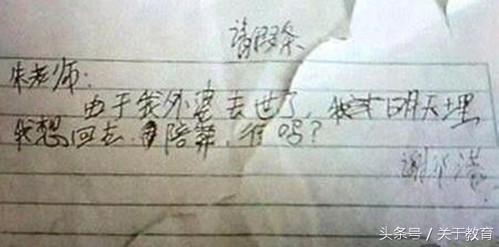 请假条
朱老师:
由于我外婆去世了,我 明天埋
我想回去 陪葬,准吗?
谢
头条号 / 关于教育